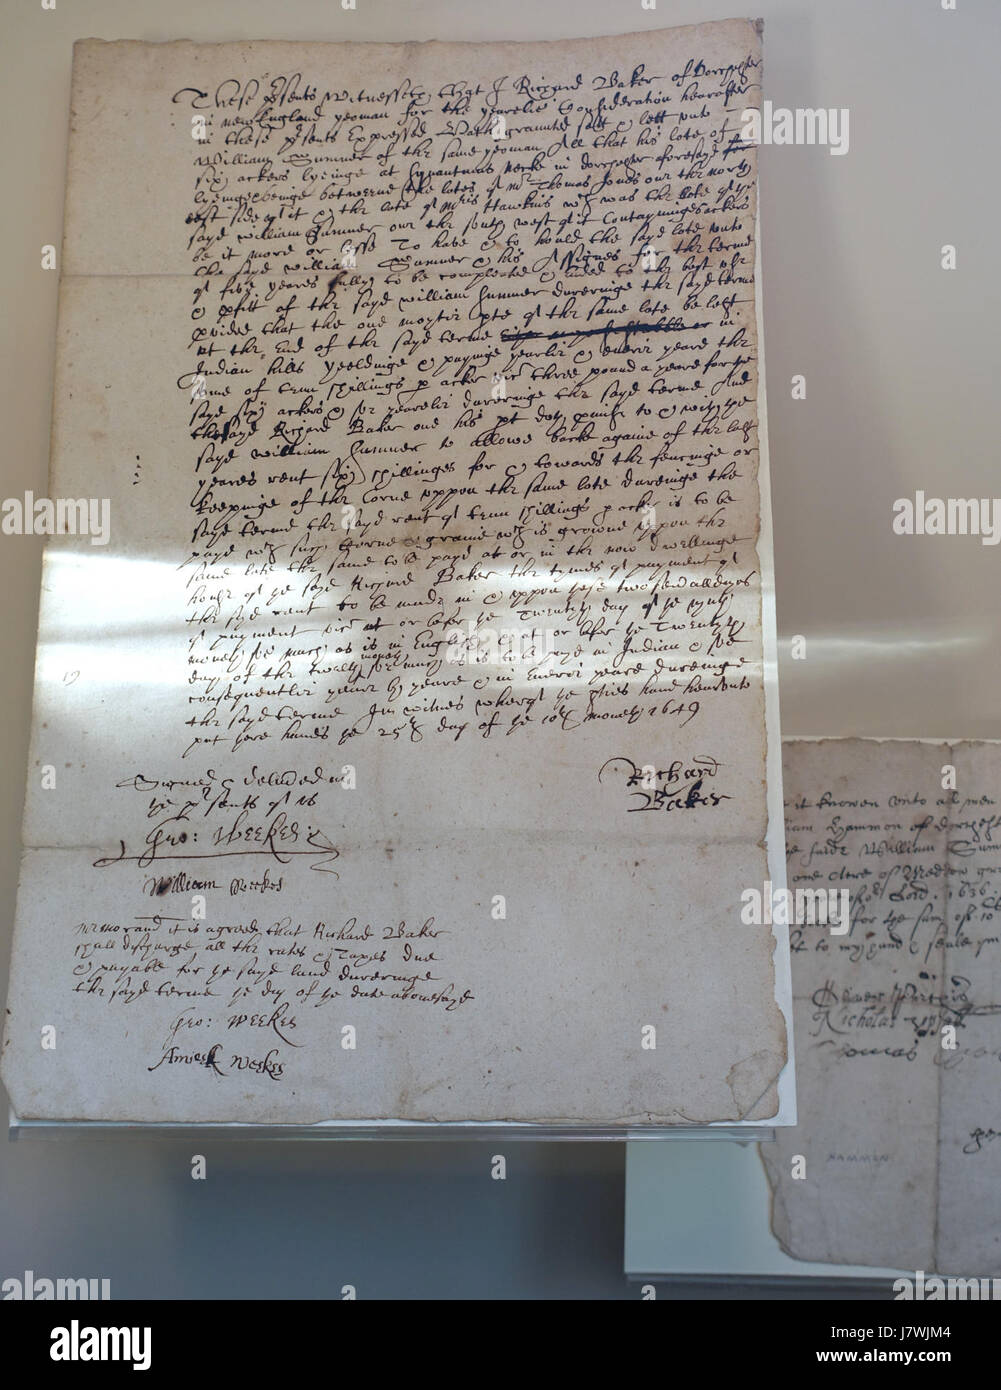 These presents Witnesseth that I Richard Baker of Dorchester
in new England yeoman for the yearelie Consideration heareafter
in these presents Expressed Hath graunted sett & lett unto
William Sumner of the same yeoman All that his lote of
six ackers lyeinge at Squantums Necke in dorchester foresayd for
lyeinge beinge betweene the lotes of mr Thomas Jones our the north
east side of it & the lote of mris Hawkins wch was the lote of ye
sayd William Sumner our the south west of it Contayninge ackers
be it more or lesse To have & to hould the sayd lote unto
the sayd William Sumner & his Assignes for the terme
of five years fully to be compleated & ended to the best use
& pfitt of the sayd William Sumner dureinge the sayd terme
pvided that the one moytie pte of the same lote be left
at the End of the sayd terme in
Indian hills yeeldinge & payinge yearlie & everie yeare the
some of tenn shillings p acker vict three pound a yeare for ye
sayd six ackers & soe yearelie dureinge the sayd terme And
the sayd Richard Baker one his pt doth pmise to & with ye
sayd William Sumner to allowe backe againe of the last
yeares rent six shillinges for & towards the fencinge or
keepinge of the Corne uppon the same lote dureinge the
sayd terme the sayd rent of tenn shillings p acker is to be
payd wth such Corne & graine wch is growne uppon the
same lote the same to be payd at or in the now dwellinge
house of ye sayd Richard Baker the tymes of payment of
the sayd rent to be made in & uppon these two severall dayes
of payment vict at or before ye Twenty day of ye
money soe much as is in English & at or before ye Twenty
day of the money soe much as is to be payd in Indian & soe
consequentlie yeare by yeare & in everie yeare dureinge
the sayd terme In witnes whereof ye pties have heareunto
put there hands ye 25th day of ye 10th moneth 1649
19
Signed & delivered in
ye presents of us
Richard
Baker
Geo: Weekes:
William Weekes
memorand it is agreed that Richard Baker
shall discharge all the rates & Taxes due
& payable for ye sayd land dureinge
the sayd terme ye day of ye date abovesayd
Geo: Weekes
Weekes
it knowen unto all men
Hammon of dorchest
William Sum
one Acre of Medow
Lord. 1636.
for ye sum of 10
to my hand & seale
Nicholas
Thomas
HAMMON
alamy
J7WJM4
www.alamy.com